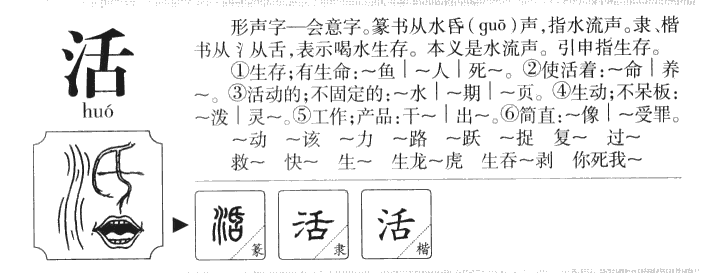 活
huó
形声字—会意字。篆书从水昏(guō)声,指水流声。隶、楷
书从氵从舌,表示喝水生存。本义是水流声。引申指生存。
①生存;有生命:~鱼|~人|死~。②使活着:~命|养
~。③活动的;不固定的:~水|~期|~页。④生动;不呆板:
~泼|灵~。⑤工作;产品:干~|出~。⑥简直:~像|~受罪。
~动 ~该 ~力 ~路 ~跃 ~捉 复~ 过~
救~ 快~ 生~ 生龙~虎 生吞~剥 你死我~
活 篆
活 隶
活 楷